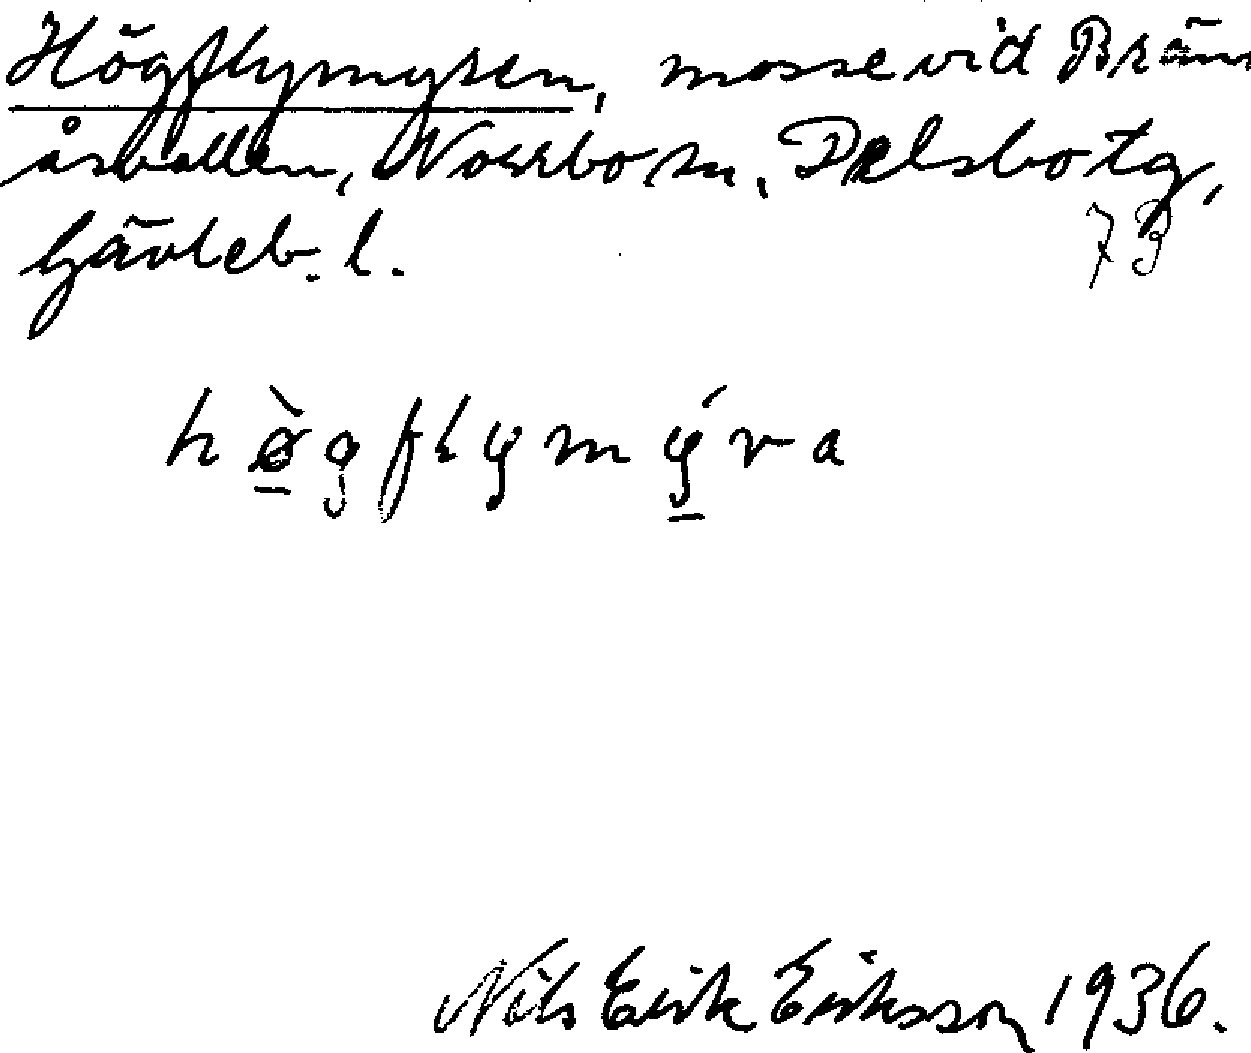 Högflymyren, mosse vid Brän
åsvallen, Norrbo sn, Delsbo tg,
Gävleb. l.
7 B
hø̀gflymýra
Nils Erik Eriksson 1936.